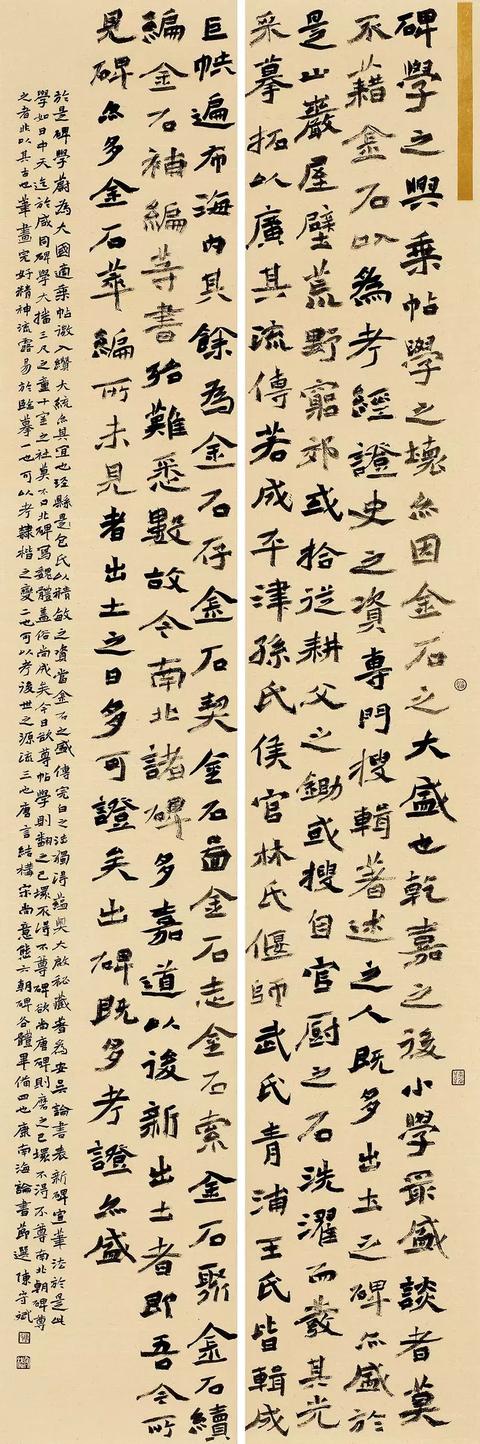 碑學之興乘帖學之壞亦因金石之大盛也乾嘉之後小學最盛談者莫
不藉金石以為考經證史之資專門搜輯著述之人既多出土之碑亦盛於
是山巖屋壁荒野窮郊或拾從耕父之鋤或搜自官厨之石洗濯而發其光
采摹拓以廣其流傳若成平津孫氏侯官林氏偃師武氏青浦王氏皆輯成
巨帙遍布海內其餘為金石存金石契金石圖金石志金石索金石聚金石續
編金石補編等書殆難悉數故今南北諸碑多嘉道以後新出土者即吾今所
見碑亦多金石萃編所未見者出土之日多可證矣出碑既多考證亦盛
於是碑學蔚為大國適乘帖微入纘大統亦其宜也涇縣是包氏以精敏之資當金石之盛傳完白之法獨得蘊奧大啟秘藏著為安吳論書表新碑宣筆法於是此
學如日中天迄於咸同碑學大播三尺之童十室之社莫不口北碑寫魏體蓋俗尚成矣今日欲尊帖學則翻之已壞不得不尊碑欲尚唐碑則磨之已壞不得不尊南北朝碑尊
之者非以其古也筆畫完好精神流露易於臨摹一也可以考隸楷之變二也可以考後世之源流三也唐言結構宋尚意態六朝碑各體畢備四也康南海論書節選 陳守斌